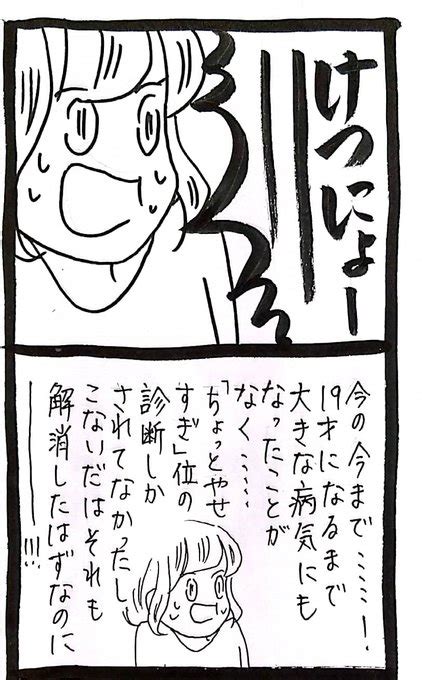 けつにょー
今の今まで……！
19才になるまで
大きな病気にも
なったことが
なく……
「ちょっとやせ
すぎ」位の
診断しか
されてなかったし
こないだはそれも
解消したはずなのに
――!!!